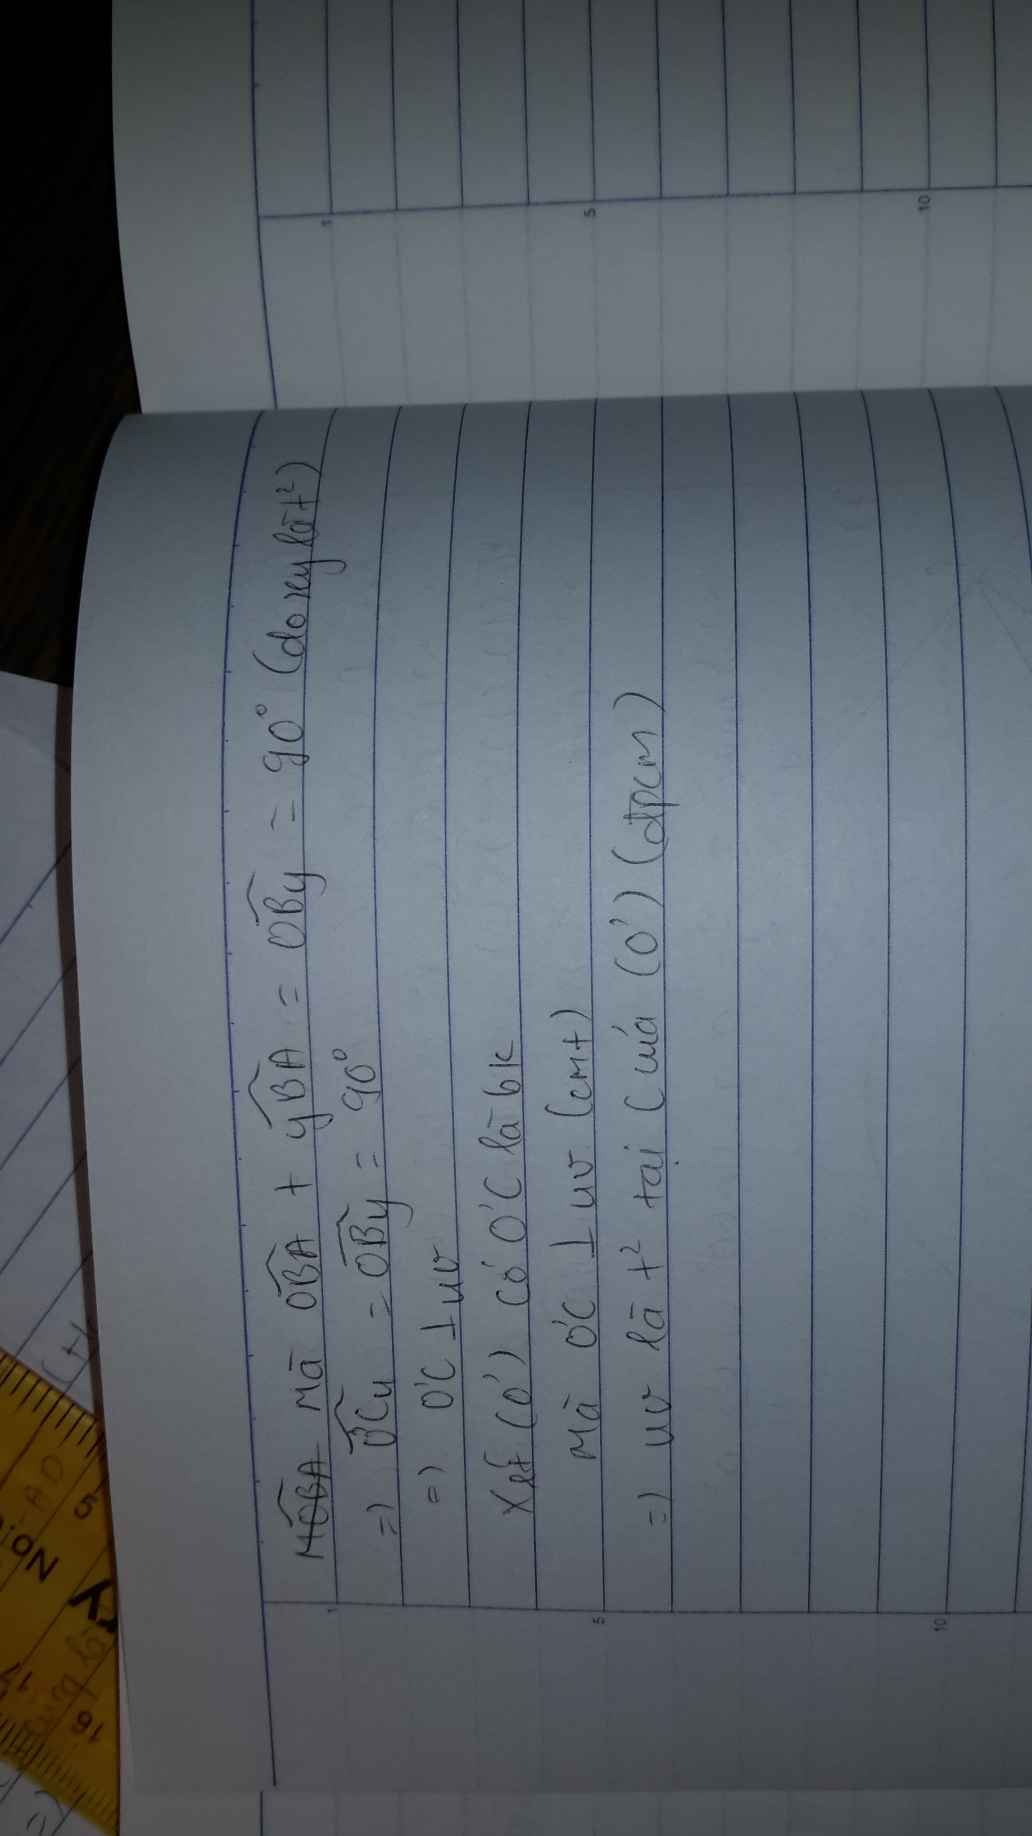 MÔBA Mà OBA + yBA = OBy = 90° (do xy là t²)
=) O'Cu = OBy = 90°
=) O'C ⊥ uv
Xét (O') có O'C là bk
Mà O'C ⊥ uv (cmt)
=) uv là t² tại C của (O') (đpcm)
1
5
10
1
5
10
5
16
17